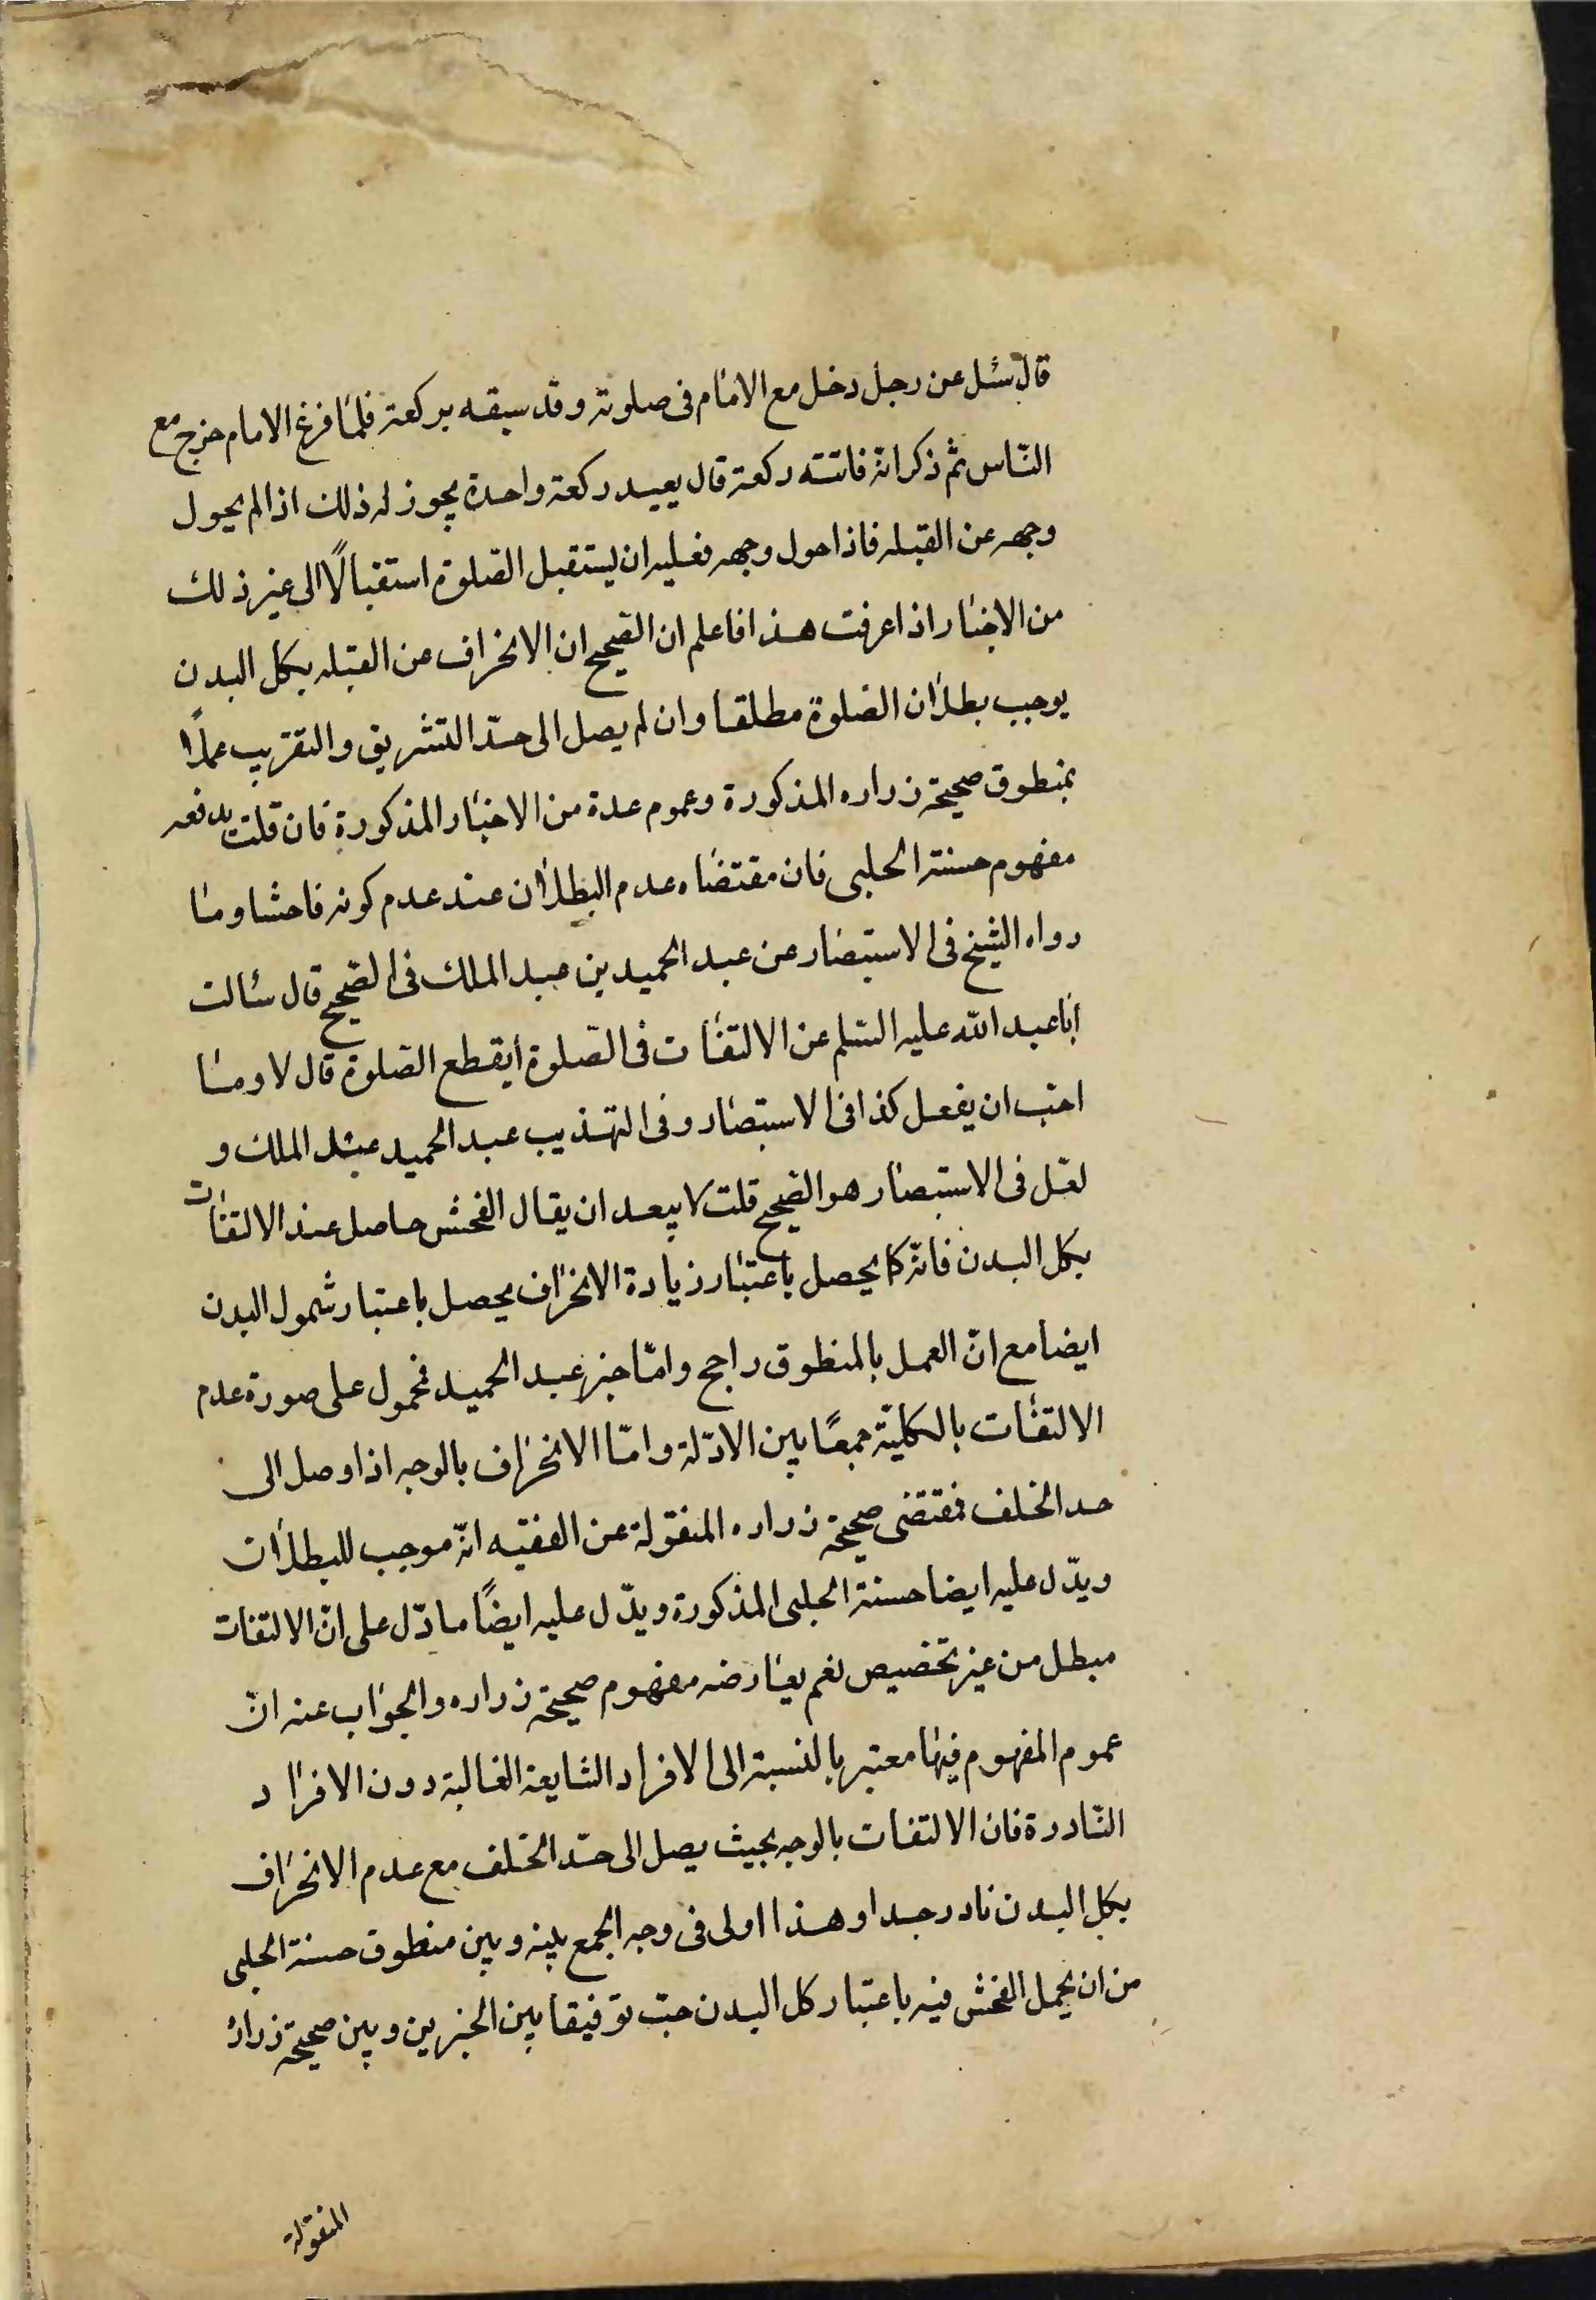 قال سئل عن رجل دخل مع الامام فى صلوته وقد سبقه بركعة فلما فرغ الامام خرج مع
الناس ثم ذكر انه فاتته ركعة قال يعيد ركعة واحدة يجوز له ذلك اذا لم يحول
وجهه عن القبله فاذا حول وجهه فعليه ان يستقبل الصلوة استقبالًا الى غير ذلك
من الاخبار اذا عرفت هذا فاعلم ان الصحيح ان الانحراف عن القبله بكل البدن
يوجب بطلان الصلوة مطلقا وان لم يصل الى حدّ التشريق والتغريب عملًا
بمنطوق صحيحة زراره المذكورة وعموم عدة من الاخبار المذكورة فان قلت يدفعه
مفهوم حسنة الحلبى فان مقتضاه عدم البطلان عند عدم كونه فاحشا وما
رواه الشيخ فى الاستبصار عن عبد الحميد بن عبد الملك فى الصّحيح قال سئالت
ابا عبد الله عليه السّلم عن الالتفات فى الصّلوة ايقطع الصّلوة قال لا وما
احبّ ان يفعل كذا فى الاستبصار وفى التهذيب عبد الحميد عن الملك و
لعّل فى الاستبصار هو الصّحيح قلت لا يبعد ان يقال الفحش حاصل عند الالتفات
بكل البدن فانّه كما يحصل باعتبار زيادة الانحراف يحصل باعتبار شمول البدن
ايضا مع انّ العمل بالمنطوق راجح وامّا خبر عبد الحميد فمحمول على صورة عدم
الالتفات بالكليّة جمعًا بين الادّلة وامّا الانحراف بالوجه اذا وصل الى
حد الخلف فمقتضى صحيحة زراره المنقولة عن الفقيه انّه موجب للبطلان
ويدّل عليه ايضا حسنة الحلبى المذكورة ويدّل عليه ايضًا ما دّل على انّ الالتفات
مبطل من غير تخصيص نعم يعارضه مفهوم صحيحة زراره والجواب عنه انّ
عموم المفهوم فيها معتبر بالنسبة الى الافراد الشايعة الغالبة دون الافراد
النّادرة فان الالتفات بالوجه بحيث يصل الى حدّ الخلف مع عدم الانحراف
بكل البدن نادر جدا وهذا اولى فى وجه الجمع بينه وبين منطوق حسنة الحلبى
من ان يحمل الفحش فيه باعتبار كل البدن حبّ توفيقا بين الخبرين وبين صحيحة زراره
المنقولة